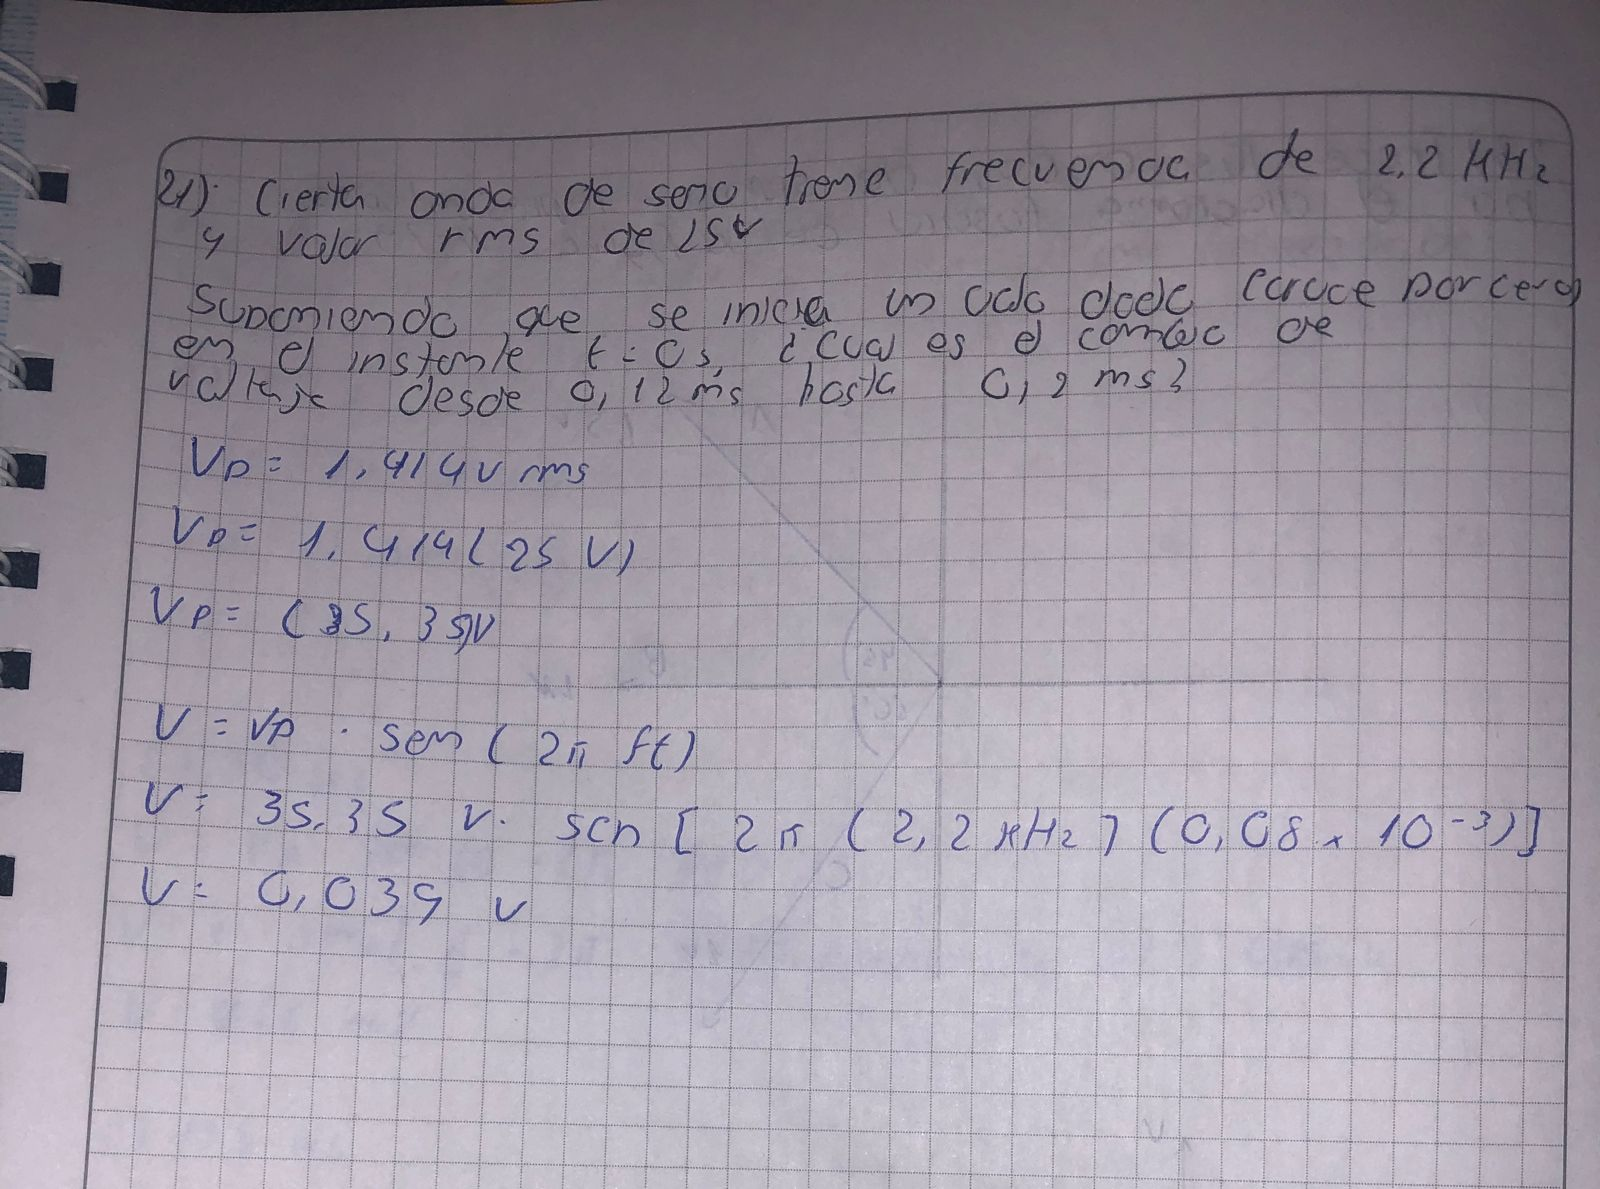 21). Cierta onda de seno tiene frecuencia de 2,2 KHz
y valor rms de 25v
Suponiendo que se inicia un ciclo dado (cruce por cero)
en el instante t=0s, ¿Cual es el cambio de
voltaje desde 0,12ms hasta 0,2 ms?
Vp= 1.414v rms
Vp= 1.414(25 V)
Vp= (35.35)V
V = Vp . sen ( 2π ft)
V= 35.35 v. sen [ 2π ( 2,2 KHz ) (0,08 x 10⁻³)]
V= 0,039 v